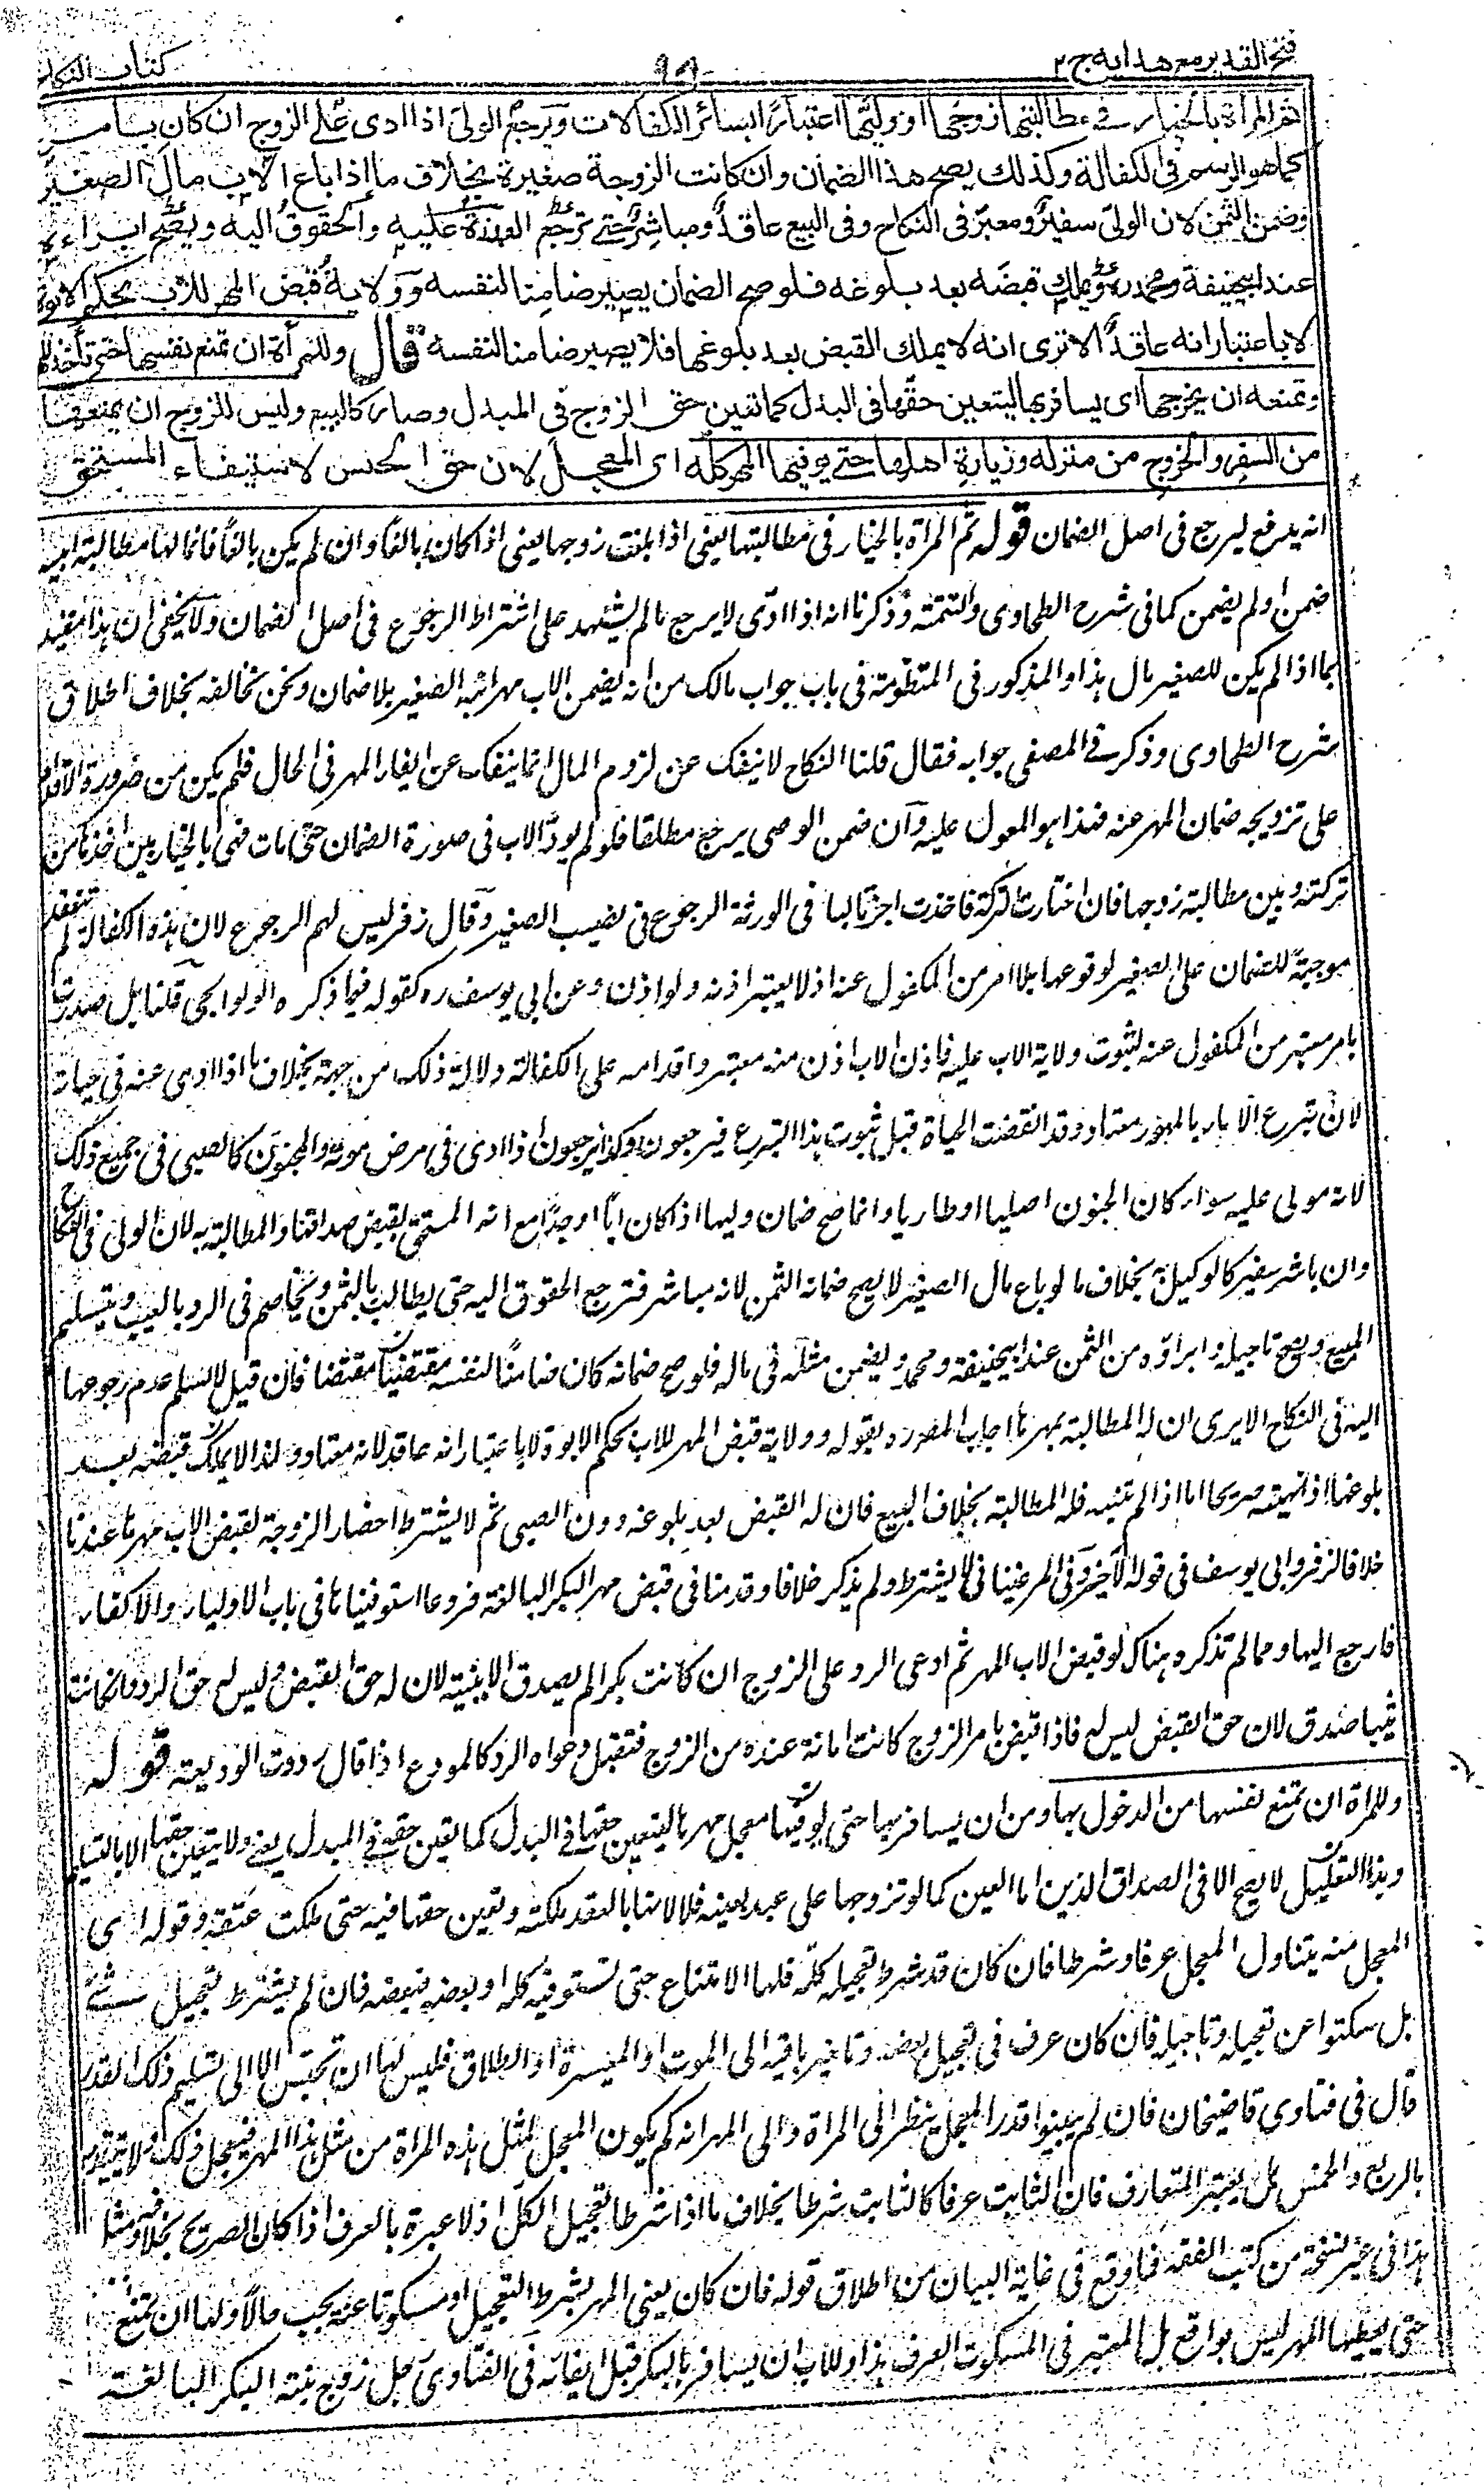 فتح القدير مع هدايه ج ٢
٩٩
كتاب النكاح
ثم المرأة بالخيار في مطالبتها زوجها او وليها اعتبارا بسائر الكفالات ويرجع الولي اذا ادى على الزوج ان كان بامره
كما هو الرسم في الكفالة وكذلك يصح هذا الضمان وان كانت الزوجة صغيرة بخلاف ما اذا باع الاب مال الصغير
وضمن الثمن لان الولي سفير ومعبر في النكاح وفي البيع عاقد ومباشر حتى ترجع العهدة عليه والحقوق اليه ويصح ابراءه
عند ابيحنيفة ومحمد ره ويملك قبضه بعد بلوغه فلو صح الضمان يصير ضامنا لنفسه وولاية قبض المهر للاب بحكم الابوة
لا باعتبار انه عاقد الا ترى انه لا يملك القبض بعد بلوغها فلا يصير ضامنا لنفسه قال وللمرأة ان تمنع نفسها حتى تأخذ المهر
وتمنعه ان يخرجها اى يسافر بها ليتعين حقها في البدل كما تعين حق الزوج في المبدل وصار كالبيع وليس للزوج ان يمنعها
من السفر والخروج من منزله وزيارة اهلها حتى يوفيها المهر كله اى المعجل لان حق الحبس لاستيفاء المستحق
انه يدفع ليرجع فى اصل الضمان قوله ثم المراة بالخيار فى مطالبتها يعنى اذا بلغت زوجها يعنى اذا كان بالغا وان لم يكن بالغا فانما لها مطالبة ابيه
ضمن او لم يضمن كما فى شرح الطحاوى والتتمة وذكرنا انه اذا ادى لا يرجع ما لم يشهد على اشتراط الرجوع فى اصل الضمان ولا يخفى ان هذا مقيد
بما اذا لم يكن للصغير مال هذا والمذكور فى المنظومة فى باب جواب مالك من انه يضمن الاب مهر ابنه الصغير بلا ضمان ونحن نخالفه بخلاف اطلاق
شرح الطحاوى وذكر فى المصفى جوابه فقال قلنا النكاح لا ينفك عن لزوم المال انما ينفك عن ايفاء المهر فى الحال فلم يكن من ضرورة الاقدام
على تزويجه ضمان المهر عنه فهذا هو المعول عليه وان ضمن الوصى يرجع مطلقا فلو لم يود الاب فى صورة الضمان حتى مات فهى بالخيار بين اخذها من
تركته وبين مطالبة زوجها فان اختارت التركة فاخذت اجزنا لباقى الورثة الرجوع فى نصيب الصغير وقال زفر ليس لهم الرجوع لان هذه الكفالة لم تنعقد
موجبة للضمان على الصغير لوقوعها بلا امر من المكفول عنه اذ لا يعتبر اذنه ولو اذن وعن ابى يوسف ره كقوله فيما ذكره الولوالجى قلنا بل صدرت
بامر معتبر من المكفول عنه لثبوت ولاية الاب عليه فاذن الاب اذن منه معتبر واقدامه على الكفالة دلالة ذلك من جهته بخلاف ما اذا ادى عنه فى حياته
لان تبرع الاباء بالمهور معتاد وقد انقضت الحياة قبل ثبوت هذا التبرع فيرجعون وكذا يرجعون اذا ادى فى مرض موته والمجنون كالصبى فى جميع ذلك
لانه مولى عليه سواء كان الجنون اصليا او طاريا وانما صح ضمان وليها اذا كان ابا او جدا مع انه المستحق لقبض صداقها والمطالبة به لان الولى فى النكاح
وان باشر سفير كالوكيل به بخلاف ما لو باع مال الصغير لا يصح ضمانه الثمن لانه مباشر فترجع الحقوق اليه حتى يطالب بالثمن ويخاصم فى الرد بالعيب ويتسليم
المبيع ويصح تاجيله وابراؤه من الثمن عند ابيحنيفة ومحمد ويضمن مثله فى ماله فلو صح ضمانه كان ضامنا لنفسه مقتضيا مقتضا فان قيل لا نسلم عدم رجوعها
اليه فى النكاح الا يرى ان له المطالبة بمهرها اجاب المصر ره بقوله وولاية قبض المهر للاب بحكم الابوة لا باعتبار انه عاقد لانه معتاد ولهذا لا يملك قبضه بعد
بلوغها اذا نهته صريحا اما اذا لم تنهه فله المطالبة بخلاف البيع فان له القبض بعد بلوغه دون الصبى ثم لا يشترط احضار الزوجة لقبض الاب مهرها عندنا
خلافا لزفر وابى يوسف فى قوله الاخير وفى المرغينانى لا يشترط ولم يذكر خلافا وقدمنا فى قبض مهر البكر البالغة فروعا استوفيناها فى باب الاولياء والاكفاء
فارجع اليها ومما لم تذكره هناك لو قبض الاب المهر ثم ادعى الرد على الزوج ان كانت بكرا لم يصدق الا ببينة لان له حق القبض وليس له حق الرد وان كانت
ثيبا صدق لان حق القبض ليس له فاذا قبض بامر الزوج كانت امانة عنده من الزوج فتقبل دعواه الرد كالمودع اذا قال رددت الوديعة قوله
وللمراة ان تمنع نفسها من الدخول بها ومن ان يسافر بها حتى يوفيها معجل مهرها ليتعين حقها فى البدل كما تعين حقه فى المبدل يعنى ولا يتعين حقها الا بالتسليم
وهذا التعليل لا يصح الا فى الصداق الدين اما العين كما لو تزوجها على عبد بعينه فلا لانها بالعقد ملكته وتعين حقها فيه حتى ملكت عتقه وقوله اى
المعجل منه يتناول المعجل عرفا وشرطا فان كان قد شرط تعجيله كله فلها الامتناع حتى تستوفيه كله او بعضه فبعضه فان لم يشترط تعجيل شئ
بل سكتوا عن تعجيله وتاجيله فان كان عرف فى تعجيل بعضه وتاخير باقيه الى الموت او الميسرة او الطلاق فليس لها ان تحتبس الا الى تسليم ذلك القدر
قال فى فتاوى قاضيخان فان لم يبينوا قدر المعجل ينظر الى المراة والى المهر انه كم يكون المعجل لمثل هذه المراة من مثل هذا المهر فيعجل ذلك ولا يتقدر
بالربع والخمس بل يعتبر المتعارف فان الثابت عرفا كالثابت شرطا بخلاف ما اذا شرطا تعجيل الكل اذ لا عبرة بالعرف اذا كان الصريح بخلافه ومثل
هذا فى غير نسخة من كتب الفقه فما وقع فى غاية البيان من اطلاق قوله فان كان يعنى المهر بشرط التعجيل او مسكوتا عنه يجب حالا ولها ان تمنع
حتى يعطيها المهر ليس بواقع بل المعتبر فى المسكوت العرف هذا وللاب ان يسافر بالبكر قبل ايفائه فى الفتاوى رجل زوج بنته البكر البالغة